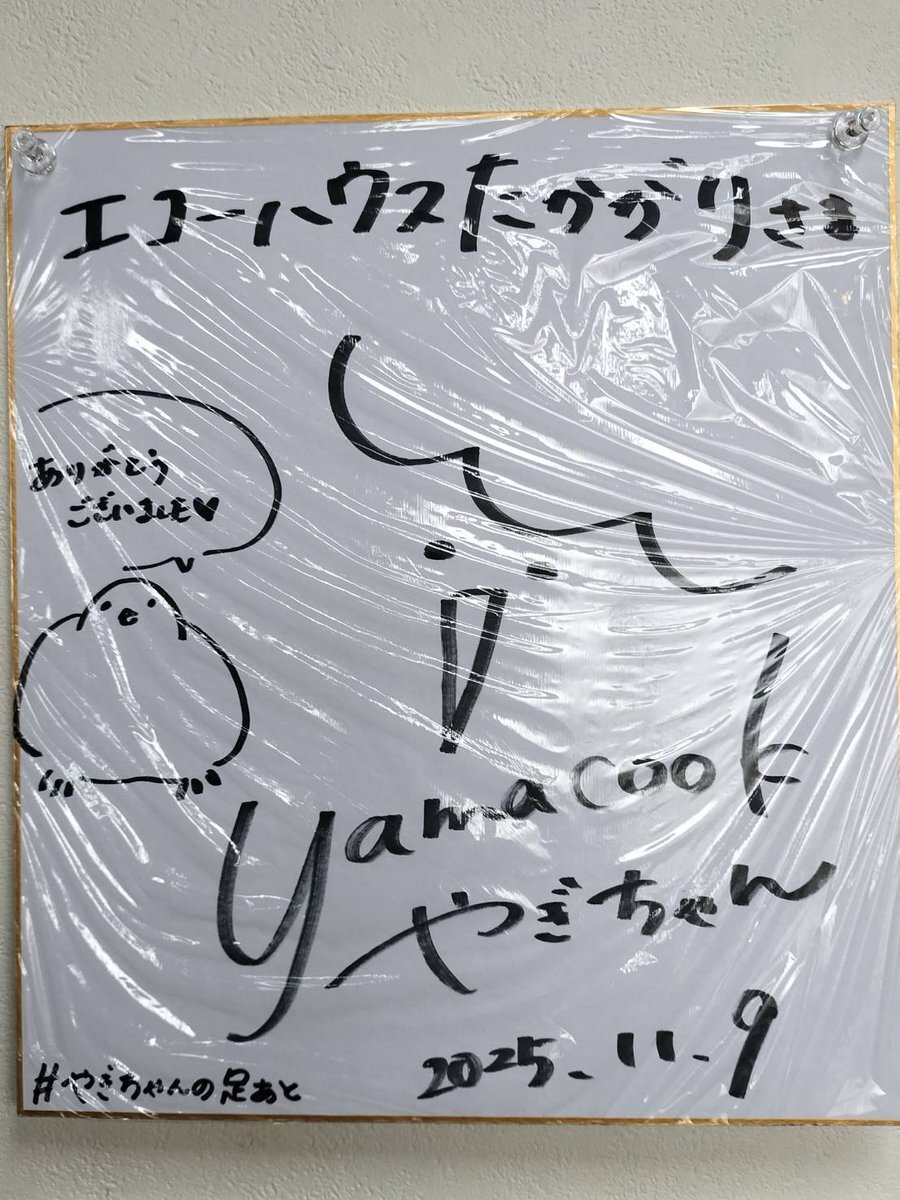 エコーハウスたかがりさま
ありがとう
ございました♥
yamacook
やぎちゃん
2025.11.9
#やぎちゃんの足あと